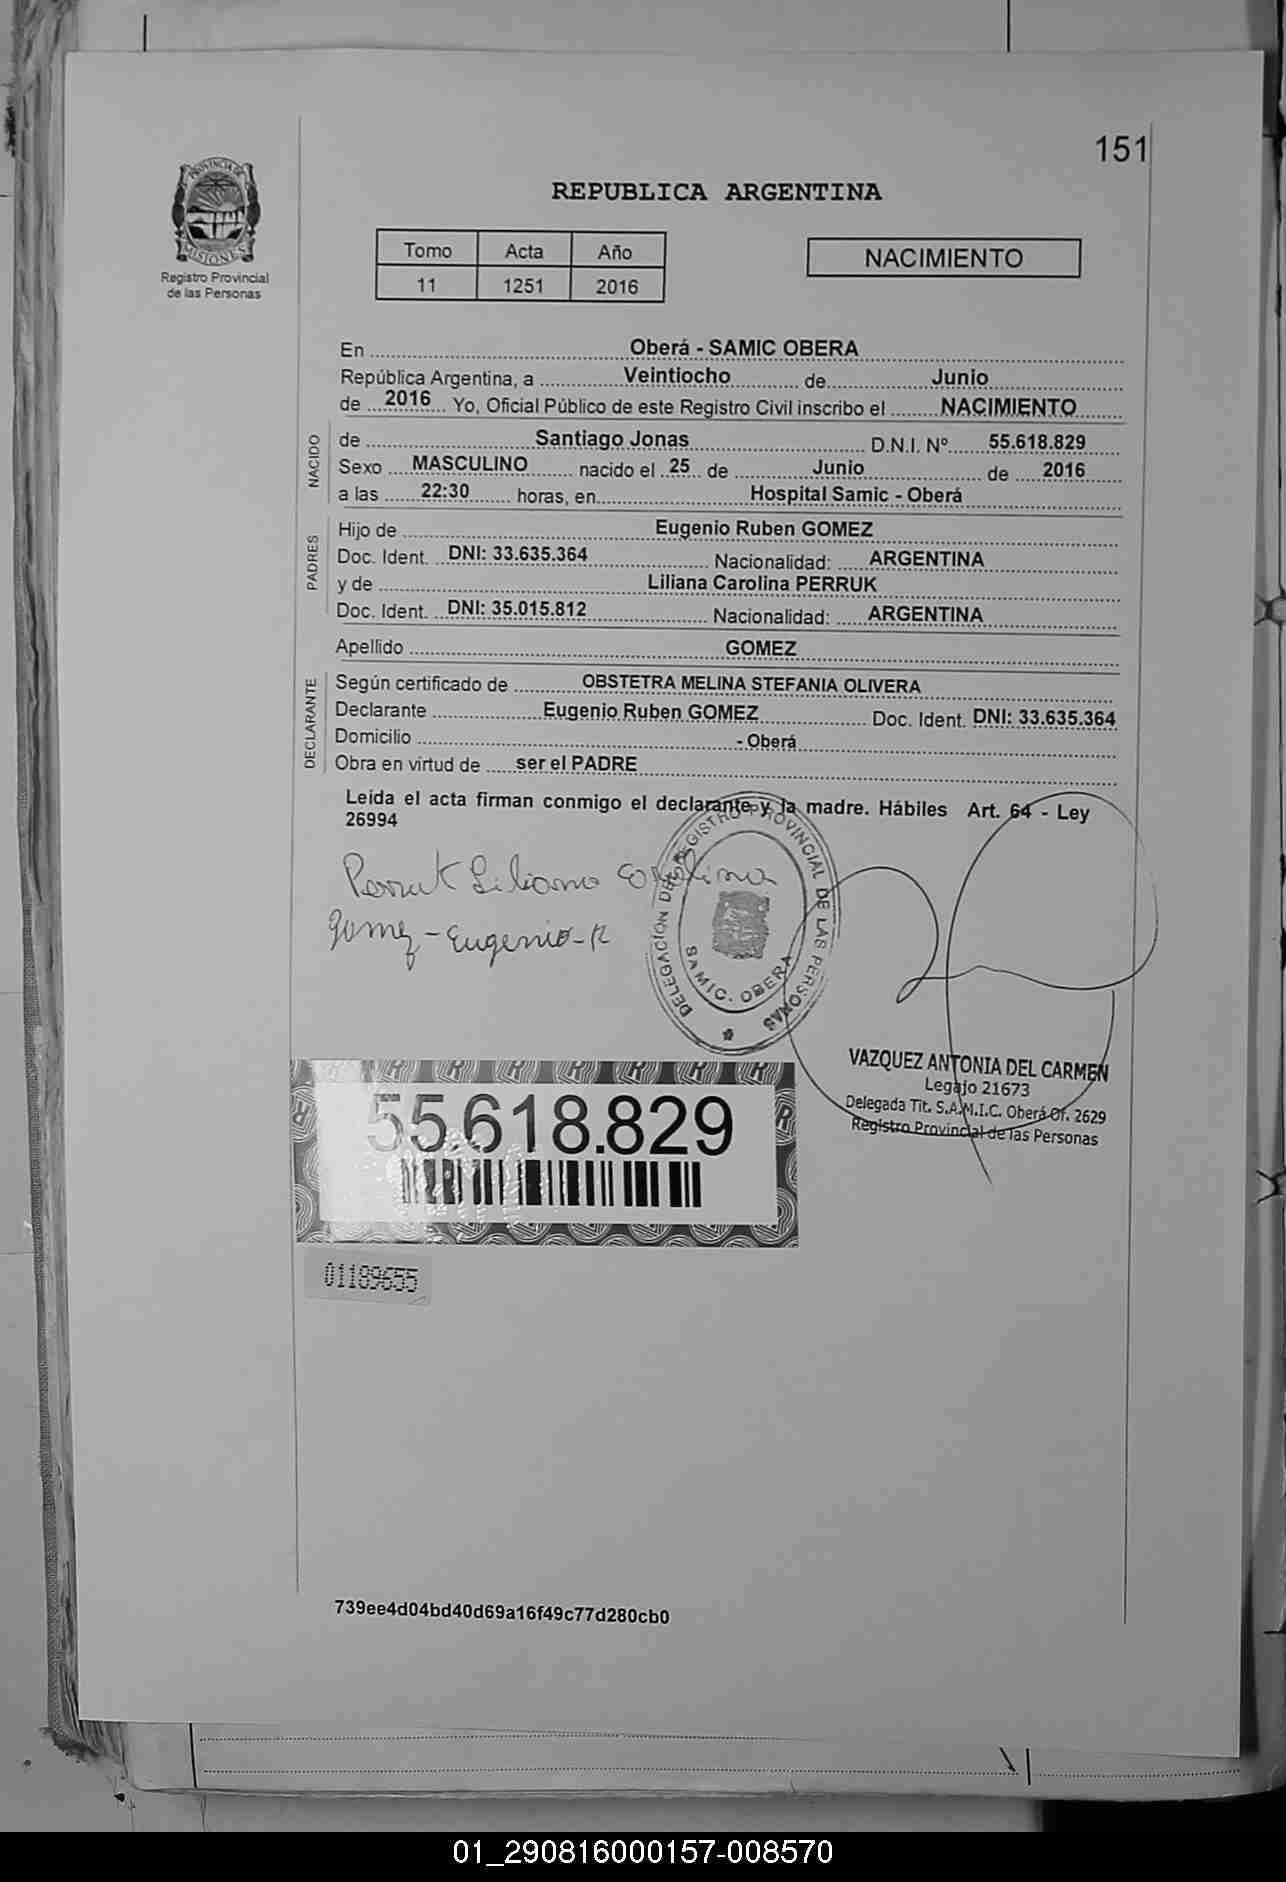 151
PROVINCIA DE
MISIONES
Registro Provincial
de las Personas
REPUBLICA ARGENTINA
Tomo Acta Año
11 1251 2016
NACIMIENTO
En Oberá - SAMIC OBERA
República Argentina, a Veintiocho de Junio
de 2016 Yo, Oficial Público de este Registro Civil inscribo el NACIMIENTO
NACIDO
de Santiago Jonas D.N.I. Nº 55.618.829
Sexo MASCULINO nacido el 25 de Junio de 2016
a las 22:30 horas, en Hospital Samic - Oberá
PADRES
Hijo de Eugenio Ruben GOMEZ
Doc. Ident. DNI: 33.635.364 Nacionalidad: ARGENTINA
y de Liliana Carolina PERRUK
Doc. Ident. DNI: 35.015.812 Nacionalidad: ARGENTINA
Apellido GOMEZ
DECLARANTE
Según certificado de OBSTETRA MELINA STEFANIA OLIVERA
Declarante Eugenio Ruben GOMEZ Doc. Ident. DNI: 33.635.364
Domicilio - Oberá
Obra en virtud de ser el PADRE
Leida el acta firman conmigo el declarante y la madre. Hábiles Art. 64 - Ley
26994
Perruk Liliana Carolina
Gomez - Eugenio - R
DELEGACION DEL REGISTRO PROVINCIAL DE LAS PERSONAS
SAMIC. OBERA
VAZQUEZ ANTONIA DEL CARMEN
Legajo 21673
Delegada Tit. S.A.M.I.C. Oberá Of. 2629
Registro Provincial de las Personas
55.618.829
01189655
739ee4d04bd40d69a16f49c77d280cb0
01_290816000157-008570